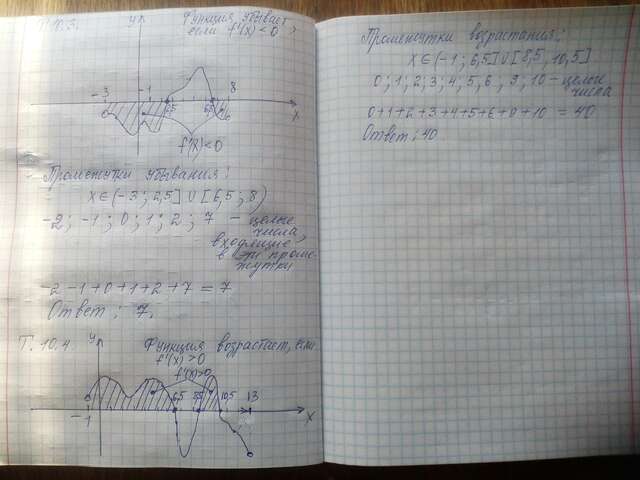 Т. 10.3.
Функция убывает,
если f'(x) < 0
y
-3
1
2,5
6,5
8
x
f'(x) < 0
Промежутки убывания:
x ∈ (-3; 2,5] ∪ [6,5; 8)
-2; -1; 0; 1; 2; 7 - целые
числа,
входящие
в эти проме-
жутки
-2-1+0+1+2+7 = 7
Ответ: 7.
Т. 10.4.
Функция возрастает, если
f'(x) > 0
y
f'(x)>0
6,5
8,5
10,5
13
-1
x
Промежутки возрастания:
x ∈ (-1; 6,5] ∪ [8,5; 10,5]
0; 1; 2; 3; 4; 5; 6; 9; 10 - целые
числа
0+1+2+3+4+5+6+9+10 = 40
Ответ: 40